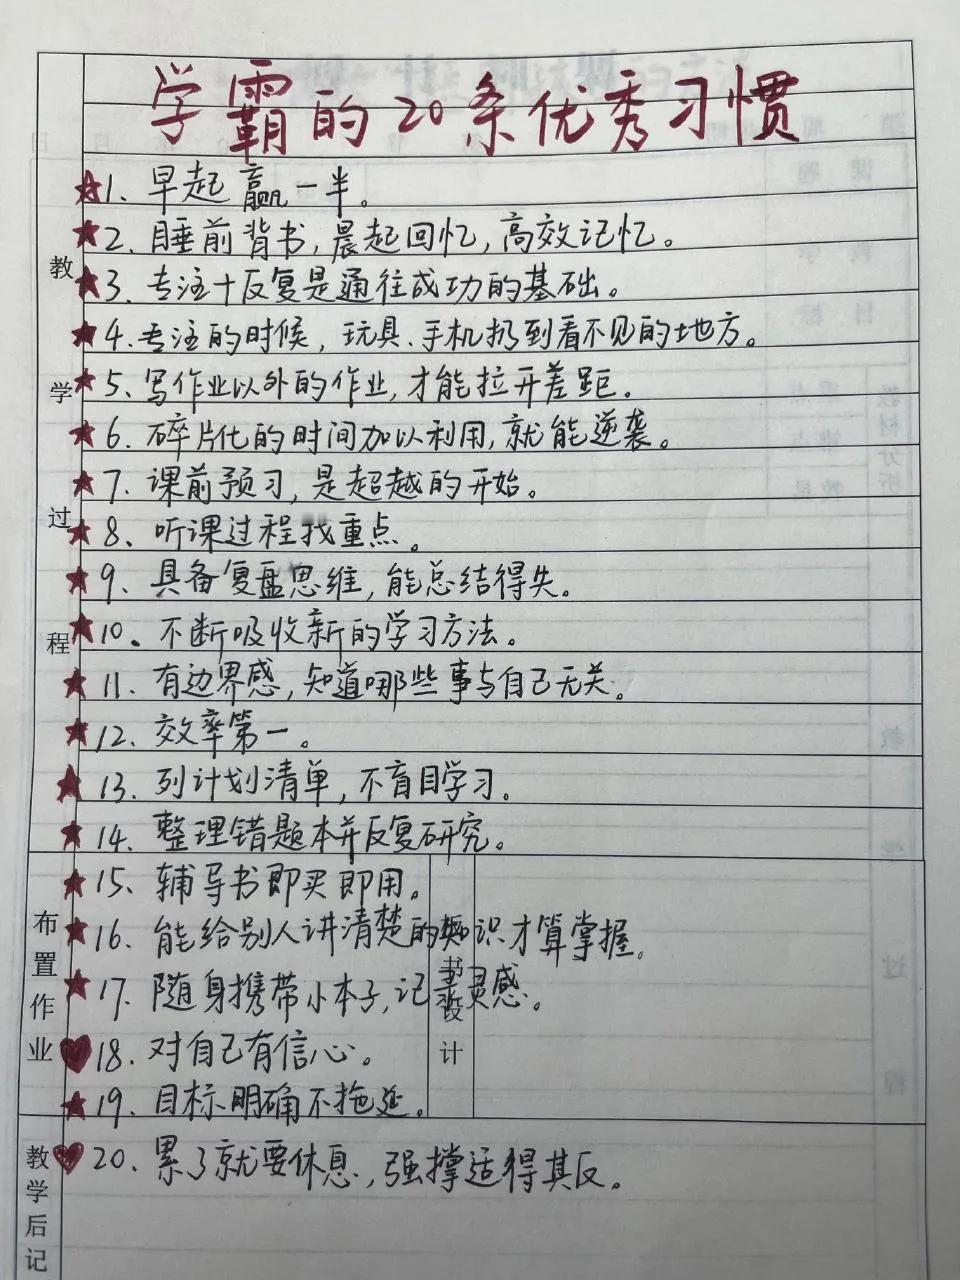 学霸的20条优秀习惯
1、早起赢一半。
2、睡前背书,晨起回忆,高效记忆。
3、专注+反复是通往成功的基础。
4、专注的时候,玩具、手机扔到看不见的地方。
5、写作业以外的作业,才能拉开差距。
6、碎片化的时间加以利用,就能逆袭。
7、课前预习,是超越的开始。
8、听课过程找重点。
9、具备复盘思维,能总结得失。
10、不断吸收新的学习方法。
11、有边界感,知道哪些事与自己无关。
12、效率第一。
13、列计划清单,不盲目学习。
14、整理错题本并反复研究。
15、辅导书即买即用。
16、能给别人讲清楚的知识才算掌握。
17、随身携带小本子,记录灵感。
18、对自己有信心。
19、目标明确不拖延。
20、累了就要休息,强撑适得其反。
教学过程
布置作业
书设计
教学后记